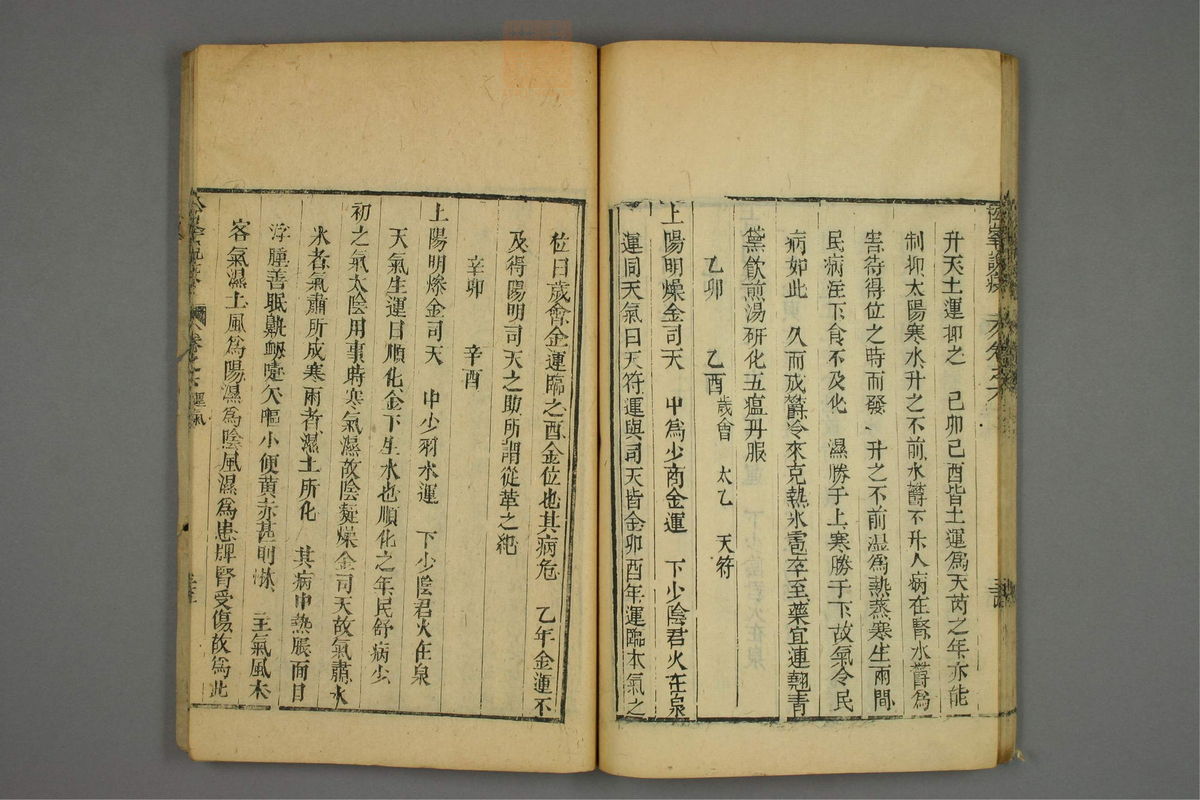 升天土運抑之　己卯己酉皆土運爲天芮之年亦能
制抑太陽寒水升之不前水欝不升人病在腎水欝爲
害待得位之時而發　升之不前溫爲熱蒸寒生雨間
民病注下食不及化　濕勝于上寒勝于下故氣令民
病如此　久而成欝冷來克熱氷雹卒至藥宜連翹青
黛飮煎湯研化五瘟丹服
乙卯　乙酉歲會　太乙　天符
上陽明燥金司天　中爲少商金運　下少陰君火在泉
運同天氣曰天符運與司天皆金卯酉年運臨本氣之
位曰歲會金運臨之酉金位也其病危　乙年金運不
及得陽明司天之助所謂從革之紀
辛卯　辛酉
上陽明燥金司天　中少羽水運　下少陰君火在泉
天氣生運曰順化金下生水也順化之年民舒病少
初之氣太陰用事時寒氣濕故陰凝燥金司天故氣肅水
氷者氣肅所成寒雨者濕土所化　其病中熱脹面目
浮腫善眠鼽衂嚏欠嘔小便黃赤甚則淋　主氣風木
客氣濕土風爲陽濕爲陰風濕爲患脾腎受傷故爲此
卷之六　運氣